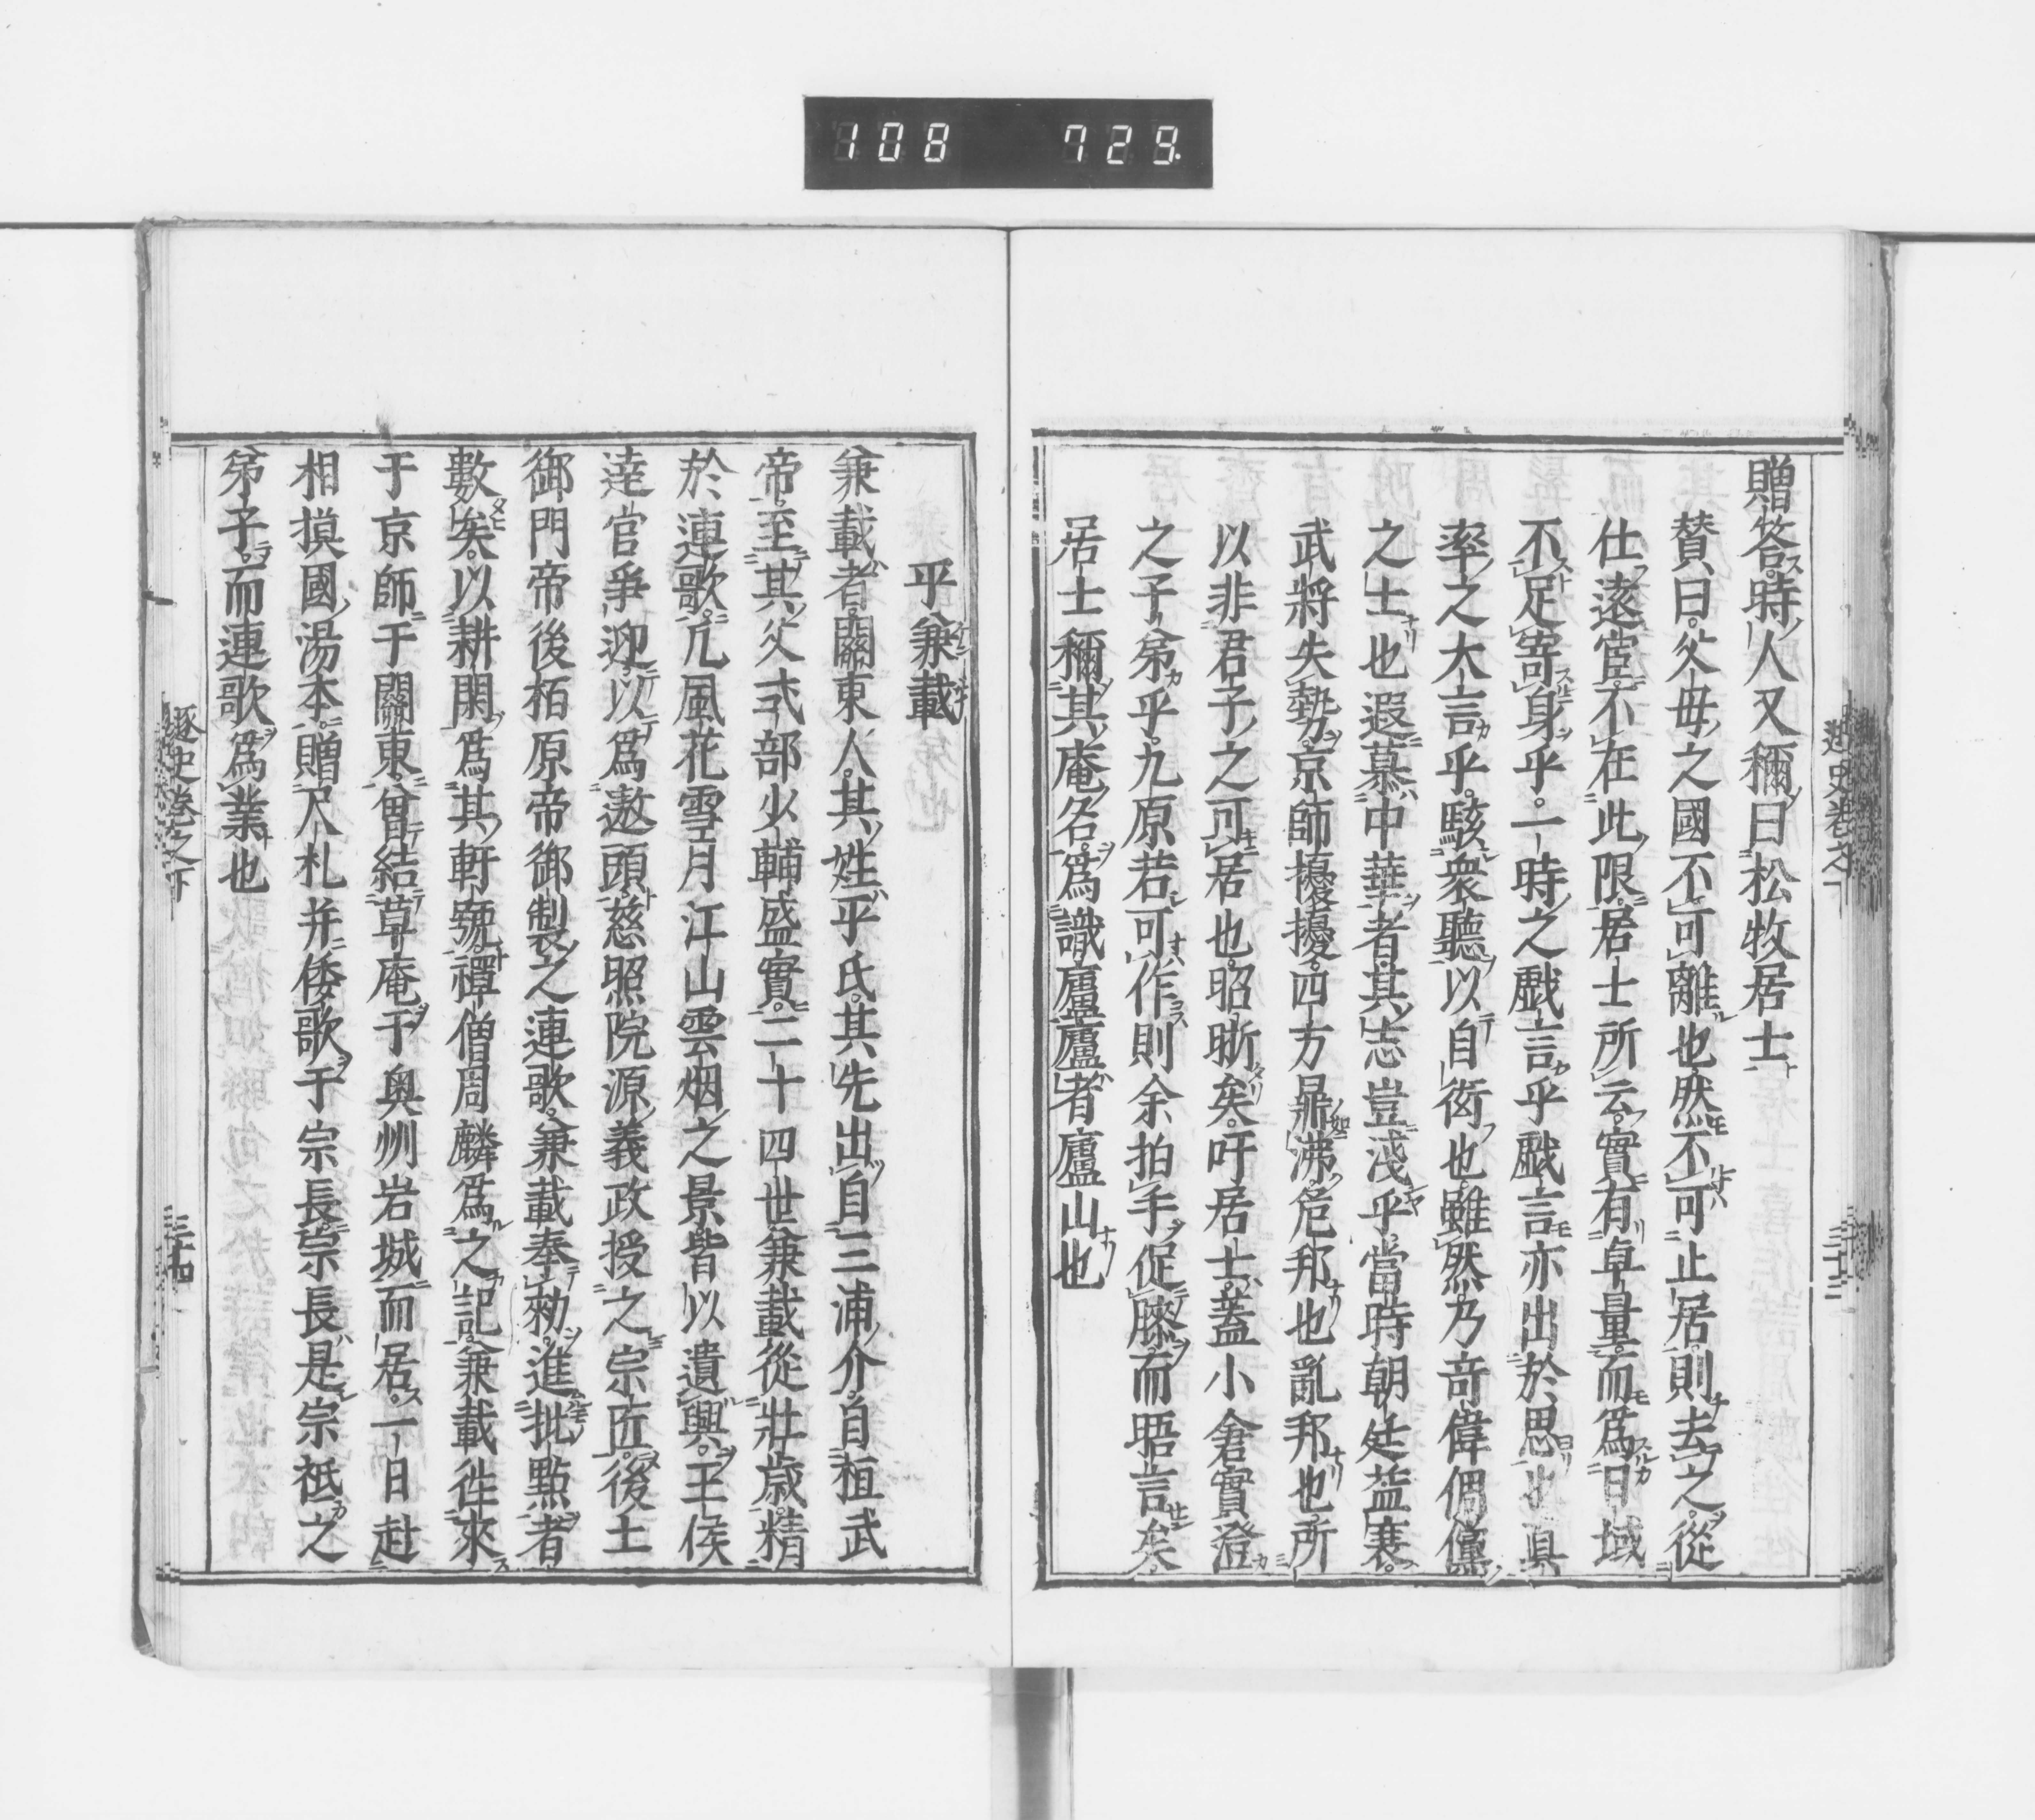 108 729.
遯史卷之下 三十三
贈答時人又稱曰松牧居士
賛曰父母之國不可離也然不可止居則去之從
仕遠宦不在此限居士所云實有卓量而爲日域
不足寄身乎一時之戲言乎戲言亦出於思也眞
率之大言乎駭衆聽以自衒也雖然乃奇偉倜儻
之士也遐慕中華者其志豈淺乎當時朝廷益衰
武將失勢京師擾擾四方鼎沸危邦也亂邦也所
以非君子之可居也昭晰矣吁居士蓋小倉實澄
之子弟乎九原若可作則余拍手促膝而晤言矣
居士稱其庵名爲識廬廬者廬山也
平兼載
兼載者關東人其姓平氏其先出自三浦介自桓武
帝至其父式部少輔盛實二十四世兼載從壯歳精
於連歌凢風花雪月江山雲烟之景皆以遺興王侯
達官爭迎以爲遨頭慈照院源義政授之宗匠後土
御門帝後栢原帝御製之連歌兼載奉勑進批點者
數矣以耕閑爲其軒號禪僧周麟爲之記兼載徃來
于京師于關東曾結草庵于奥州岩城而居一日赴
相摸國湯本贈尺札并倭歌于宗長宗長是宗祇之
弟子而連歌爲業也
遯史卷之下 三十四